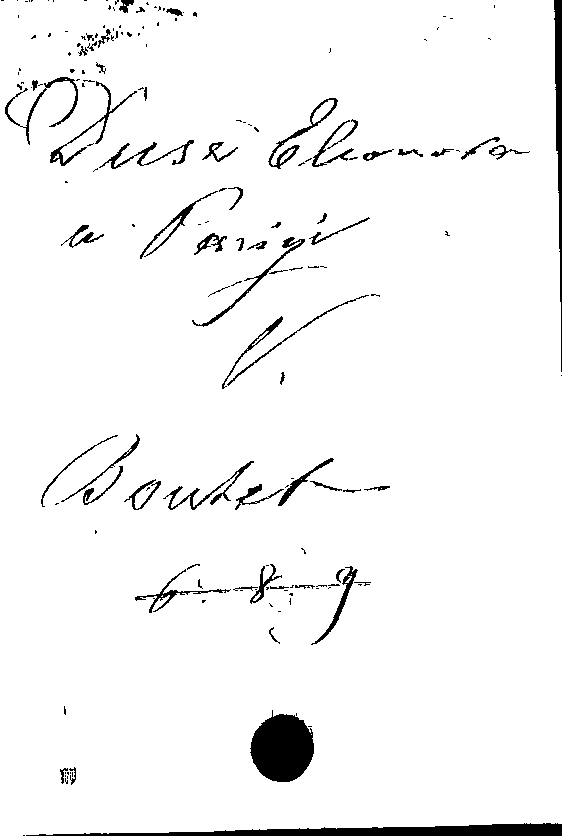 Duse Eleonora
a Parigi
V.
Boutet
6. 8. 9